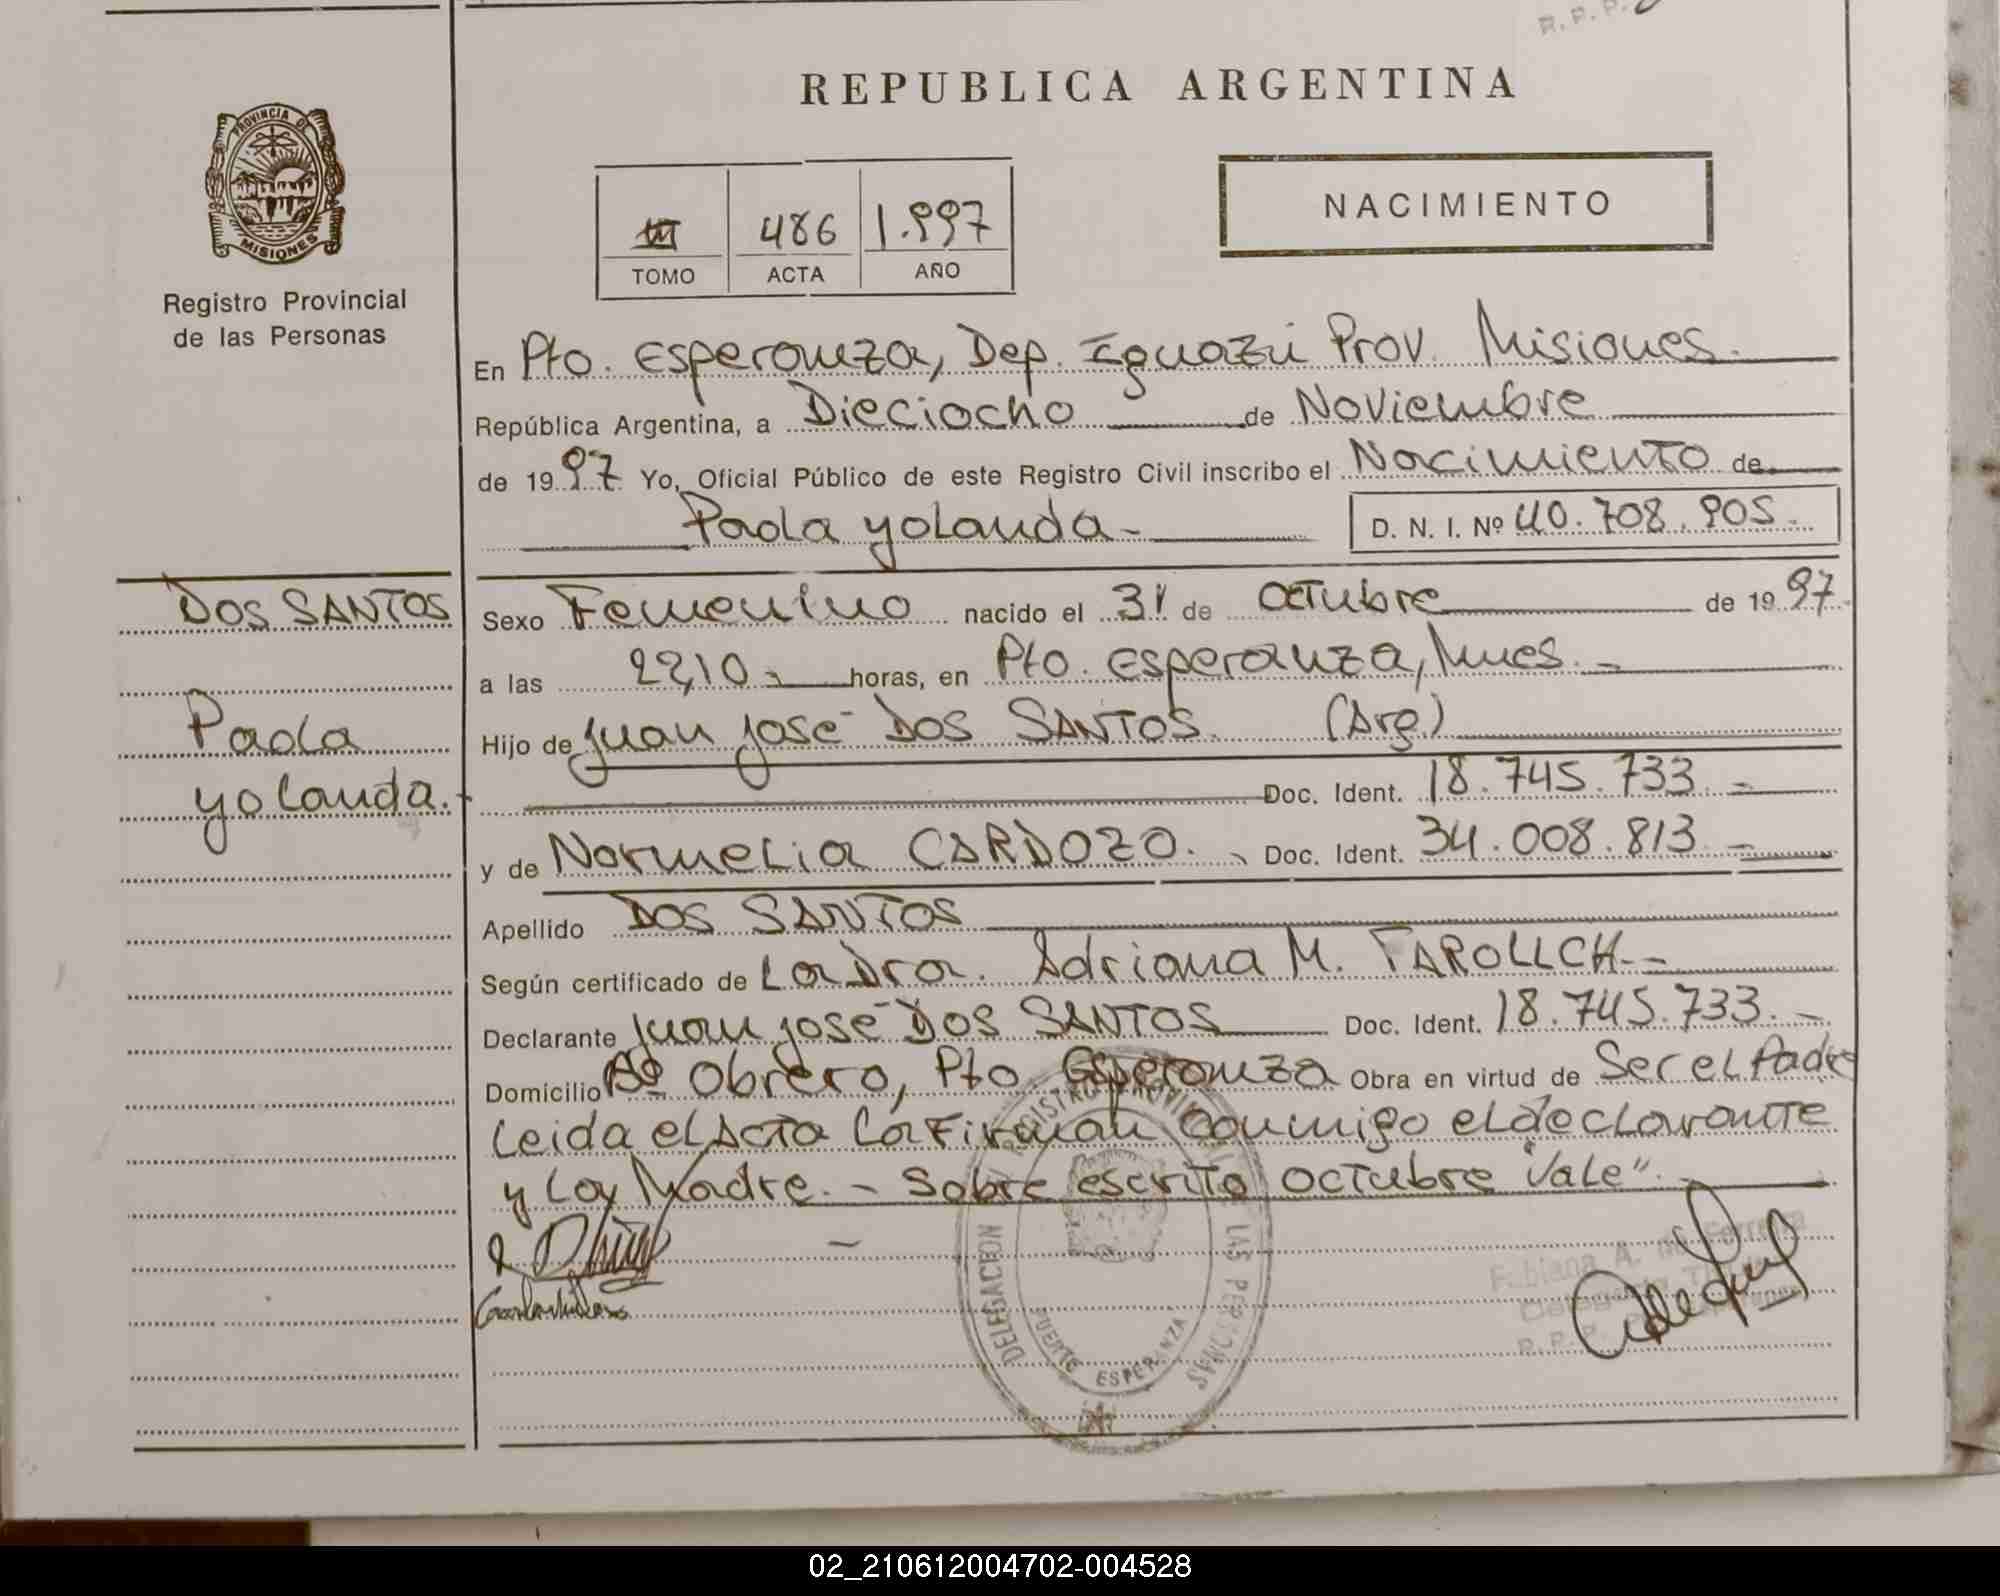 R.P.P.
REPUBLICA ARGENTINA
PROVINCIA DE
MISIONES
Registro Provincial
de las Personas
III 486 1.997
TOMO ACTA AÑO
NACIMIENTO
En Pto. Esperanza, Dep. Iguazú Prov. Misiones.
República Argentina, a Dieciocho de Noviembre
de 1997 Yo, Oficial Público de este Registro Civil inscribo el Nacimiento de
Paola yolanda- D. N. I. Nº 40.708.905.
DOS SANTOS
Paola
yolanda.-
Sexo Femenino nacido el 31 de OCTubre de 1997
a las 22,10 horas, en Pto. Esperanza, Mnes.-
Hijo de Juan José DOS SANTOS (Arg.)
Doc. Ident. 18.745.733.-
y de NormeLia CARDOZO. Doc. Ident. 34.008.813.-
Apellido DOS SANTOS
Según certificado de La Dra. Adriana M. TAROLLCH--
Declarante Juan José DOS SANTOS Doc. Ident. 18.745.733.-
Domicilio Bº Obrero, Pto Esperanza Obra en virtud de Ser el Padre
Leida el Acta La Firman Conmigo el declarante
y La Madre.- Sobre escrito OCTubre "Vale".-
DELEGACION REGISTRO PROVINCIAL DE LAS PERSONAS
PUERTO ESPERANZA
Fabiana A. de Ferreira
R.P.P.
02_210612004702-004528